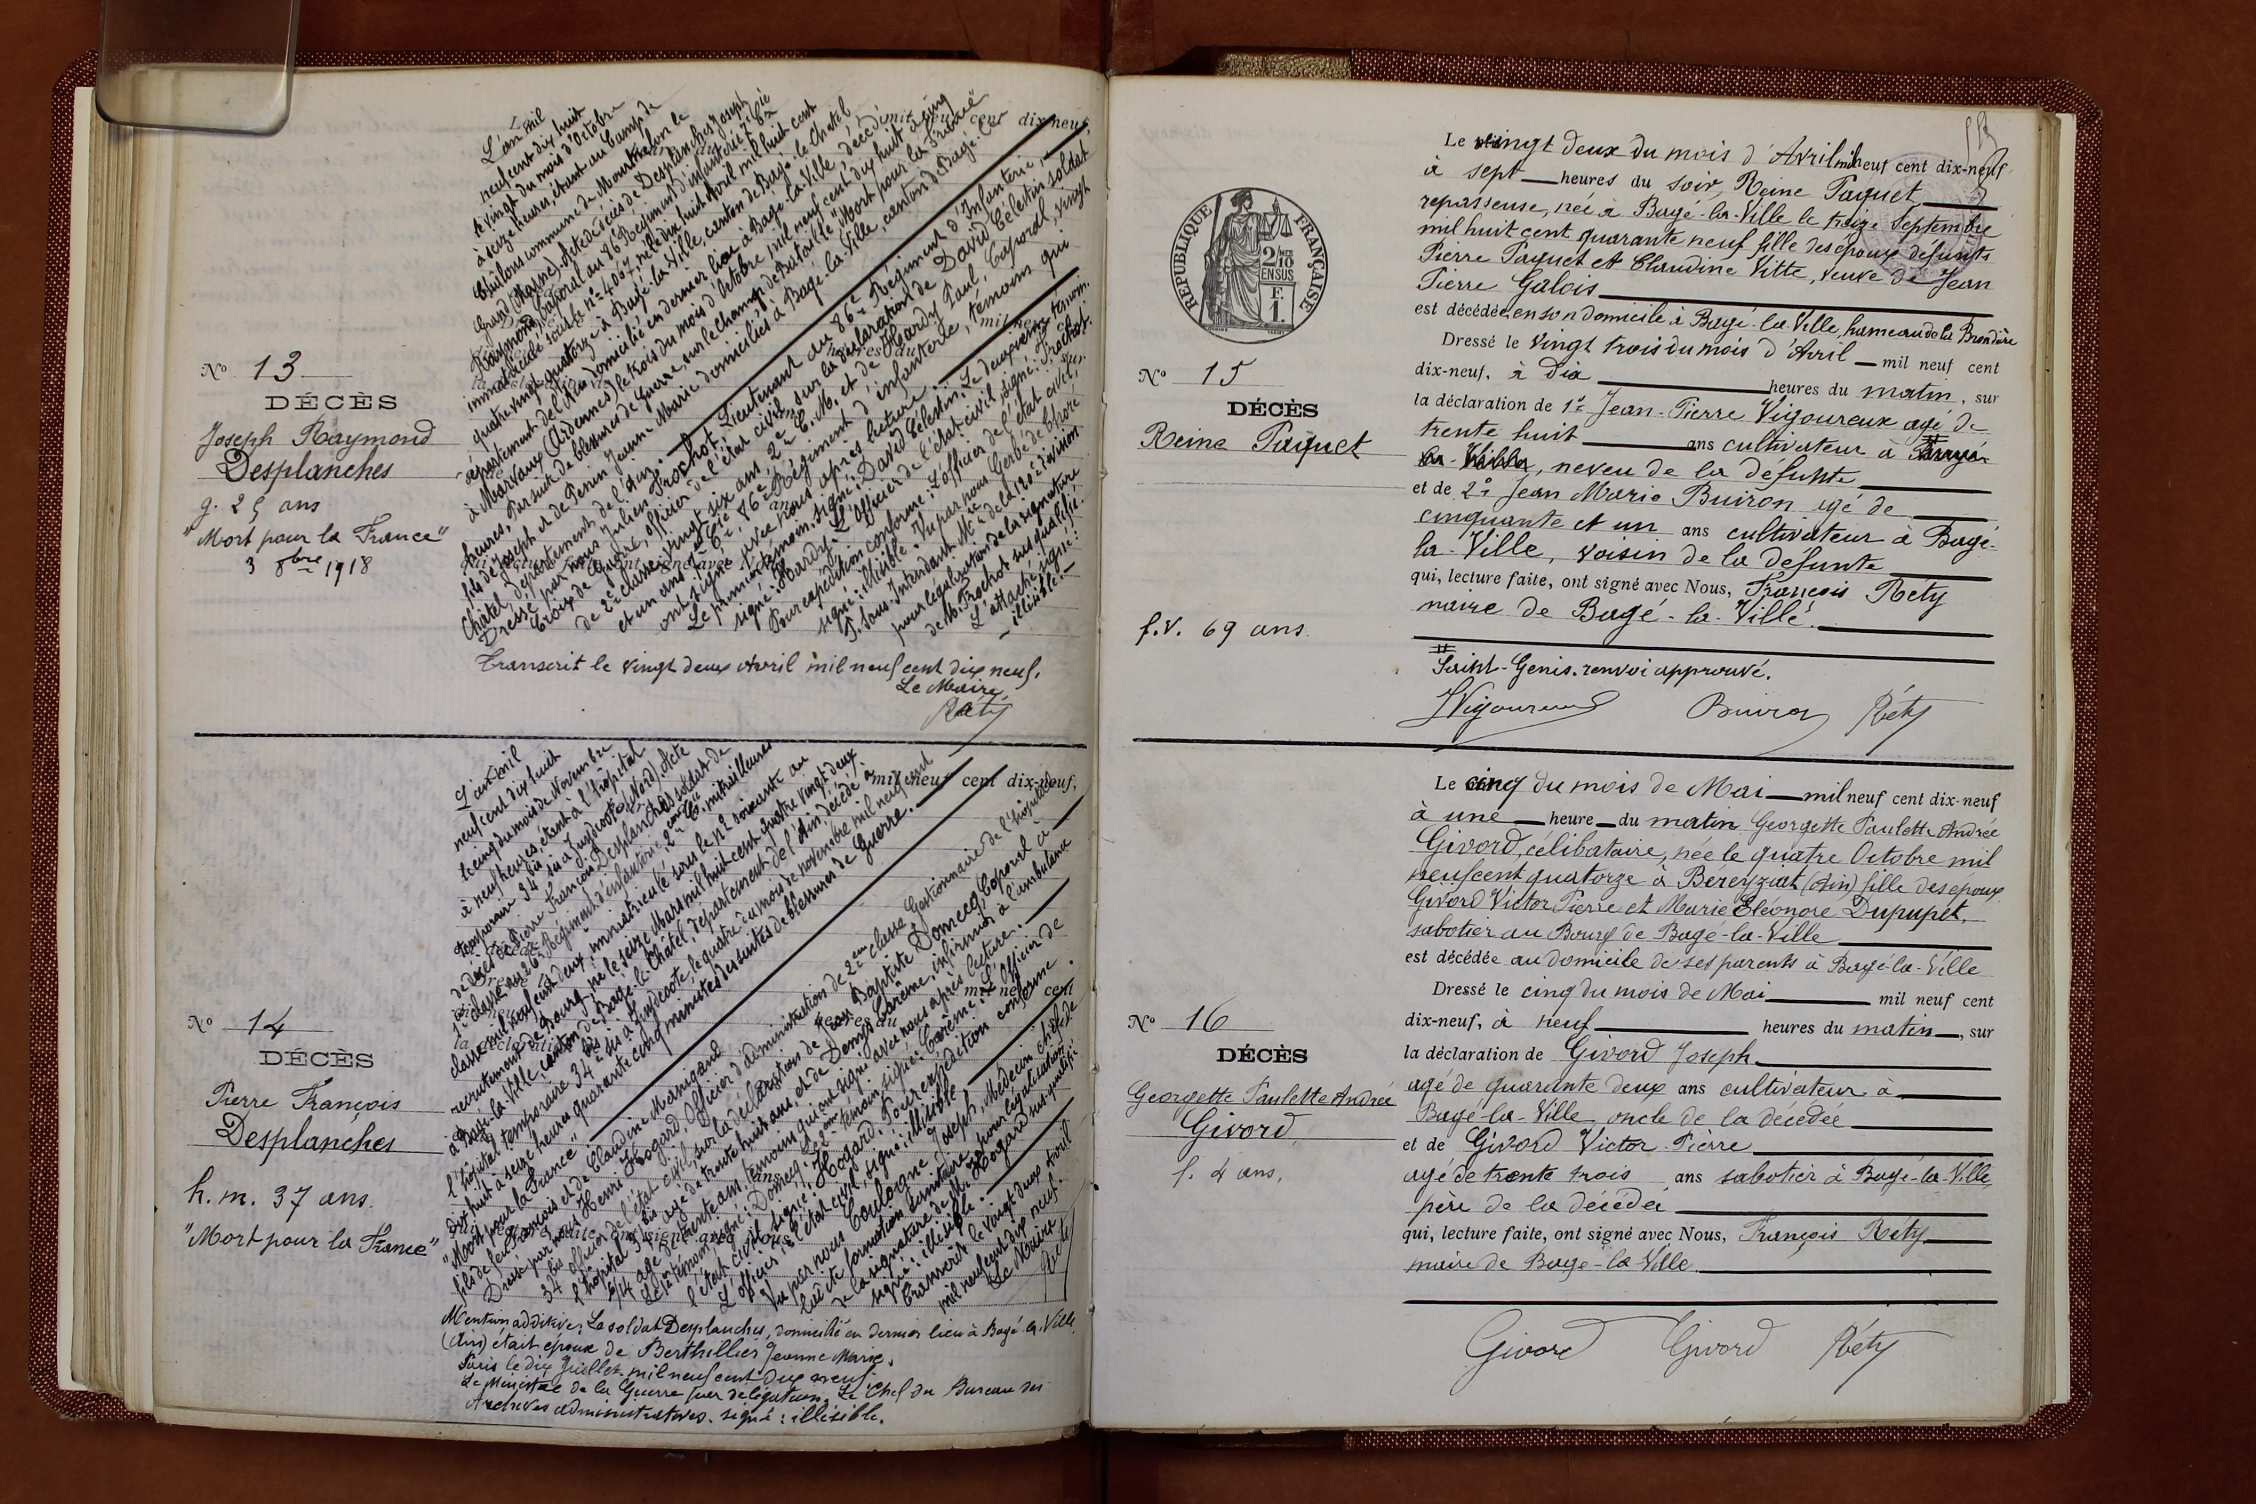 N° 13
DÉCÈS
Joseph Raymond
Desplanches
g. 25 ans
"Mort pour la France"
3 8bre 1918
L'an mil
neuf cent dix huit
le vingt du mois d'Octobre
à seize heures, étant au Camp de
commune de Mourmelon le
Grand (Marne). Acte de décès de Desplanches Joseph
Raymond, Caporal au 86e Régiment d'infanterie 7e Cie
immatriculé sous le N° 4067, né le dix huit Avril mil huit cent
quatre vingt quatorze à Bagé-la-Ville, canton de Bagé-le-Châtel
département de l'Ain domicilié en dernier lieu à Bagé-la-Ville, décédé
à Marvaux (Ardennes) le trois du mois d'Octobre mil neuf cent dix huit à cinq
heures, Par suite de blessures de Guerre, sur le champ de Bataille "Mort pour la France"
fils de Joseph et de Perrin Jeanne Marie domiciliés à Bagé-la-Ville, canton de Bagé-le-
Châtel, département de l'Ain.
Dressé par nous Julien Frochot, Lieutenant au 86e Régiment d'Infanterie,
Croix de Guerre, officier de l'état civil, sur la déclaration de David Célestin soldat
de 2e classe, vingt six ans, 2e C. M. et de Hardy Paul, Caporal, vingt
et un ans, 6e Cie, 86e Régiment d'infanterie, témoins qui
ont signé avec nous après lecture
Le premier témoin, signé: David Célestin. Le deuxième témoin.
signé: Hardy. L'officier de l'état civil, signé: Frochot.
Pour expédition conforme. L'officier de l'état civil,
signé: illisible. Vu par nous
S. Sous-Intendant Mre de la 120e Division
pour légalisation de la signature
de M. Frochot sus qualifié.
L'attaché, signé:
illisible.
Transcrit le vingt deux Avril mil neuf cent dix neuf.
Le Maire,
Réty
N° 14
DÉCÈS
Pierre François
Desplanches
h. m. 37 ans.
"Mort pour la France"
L'an mil
neuf cent dix huit
le cinq du mois de Novembre
à neuf heures, étant à l'hôpital
temporaire 34 bis à Zuydcoote (Nord). Acte
de décès de Pierre François Desplanches soldat de
1e classe au 26e Régiment d'infanterie 2e Cie mitrailleuses
classe mil neuf cent deux, immatriculé sous le n° soixante au
recrutement de Bourg, né le seize Mars mil huit cent quatre vingt deux
à Bagé-la-Ville, canton de Bagé-le-Châtel, département de l'Ain décédé à
l'hôpital temporaire 34 bis à Zuydcoote, le quatre du mois de novembre mil neuf cent
dix huit à seize heures quarante cinq minutes des suites de blessures de Guerre.
"Mort pour la France"
fils de feu François et de Claudine Manigand
Dressé par nous Henri Hogard, Officier d'administration de 2eme classe Gestionnaire de l'hôpital
34 bis officier de l'état civil, sur la déclaration de Jean Baptiste Domecq Caporal à
l'hôpital 34 bis agé de trente huit ans, et de Denys Carême, infirmier à l'ambulance
agé de trente ans, témoins qui ont signé avec nous après lecture.
Le 1er témoin, signé: Domecq. Le 2eme témoin, signé: Carême. L'Officier de
l'état civil, signé: Hogard. Pour expédition conforme.
L'officier de l'état civil, signé: illisible
Vu par nous Coulogne Joseph, Médecin chef de
la dite formation sanitaire, pour légalisation
de la signature de M. Hogard sus qualifié.
signé: illisible.
Transcrit le vingt deux Avril
mil neuf cent dix neuf.
Le Maire
Réty
Mention additive: Le soldat Desplanches, domicilié en dernier lieu à Bagé-la-Ville
(Ain) était époux de Berthillier Jeanne Marie.
Paris le dix Juillet mil neuf cent dix neuf.
Le Ministre de la Guerre par délégation, Le Chef du Bureau des
Archives administratives. signé: illisible.
RÉPUBLIQUE FRANÇAISE
2/10
EN SUS
F.
1.
N° 15
DÉCÈS
Reine Paquet
f. v. 69 ans.
Le vingt deux du mois d'Avril mil neuf cent dix-neuf
à sept heures du soir, Reine Paquet
repasseuse, née à Bagé-la-Ville le treize Septembre
mil huit cent quarante neuf fille des époux défunts
Pierre Paquet et Claudine Vitte, veuve de Jean
Pierre Galois
est décédée en son domicile à Bagé-la-Ville, hameau de la Brondière
Dressé le vingt trois du mois d'Avril mil neuf cent
dix-neuf, à dix heures du matin, sur
la déclaration de 1° Jean-Pierre Vigoureux agé de
trente huit ans cultivateur à # Bagé-
la-Ville, neveu de la défunte
et de 2° Jean Marie Buiron agé de
cinquante et un ans cultivateur à Bagé-
la-Ville, voisin de la défunte
qui, lecture faite, ont signé avec Nous, François Réty
maire de Bagé-la-Ville.
# Saint-Genis. renvoi approuvé.
JVigoureux Buiron Réty
N° 16
DÉCÈS
Georgette Paulette Andrée
Givord
f. 4 ans.
Le cinq du mois de Mai mil neuf cent dix-neuf
à une heure du matin Georgette Paulette Andrée
Givord, célibataire, née le quatre Octobre mil
neuf cent quatorze à Bereyziat (Ain) fille des époux
Givord Victor Pierre et Marie Eléonore Dupupet,
sabotier au Bourg de Bagé-la-Ville
est décédée au domicile de ses parents à Bagé-la-Ville
Dressé le cinq du mois de Mai mil neuf cent
dix-neuf, à neuf heures du matin, sur
la déclaration de Givord Joseph
agé de quarante deux ans cultivateur à
Bagé-la-Ville oncle de la décédée
et de Givord Victor Pierre
agé de trente trois ans sabotier à Bagé-la-Ville,
père de la décédée
qui, lecture faite, ont signé avec Nous, François Réty
maire de Bagé-la-Ville.
Givord Givord Réty